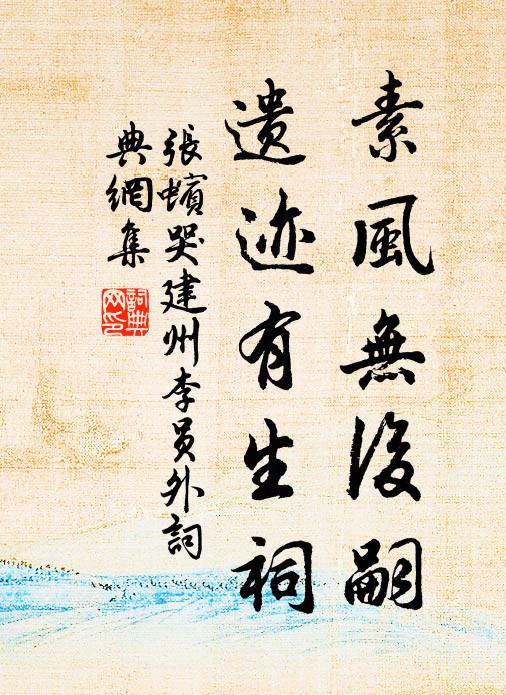 素風無後嗣
遺迹有生祠
張蠙哭建州李員外詞
典網集
詞典網印